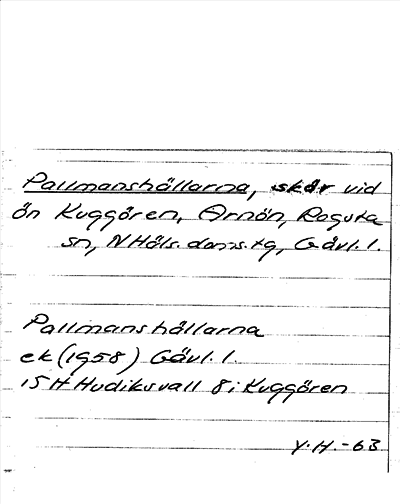 Pallmanshällarna, skär vid
ön Kuggören, Arnön, Rogsta
sn, N Häls. doms. tg, Gävl. l.
Pallmanshällarna
ek (1958) Gävl. l.
15H Hudiksvall 8i Kuggören
Y.H. -63